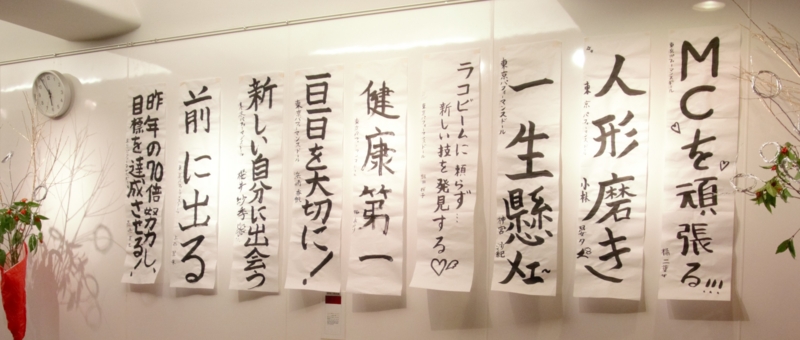 MCを頑張る!!!
人形磨き
小林
一生懸メェ〜
東京パフォーマンスドール
ラコビームに頼らず…
新しい技を発見する♡
健康第一
一日一日を大切に!
新しい自分に出会う
前に出る
昨年の70倍努力し、
目標を達成させる!